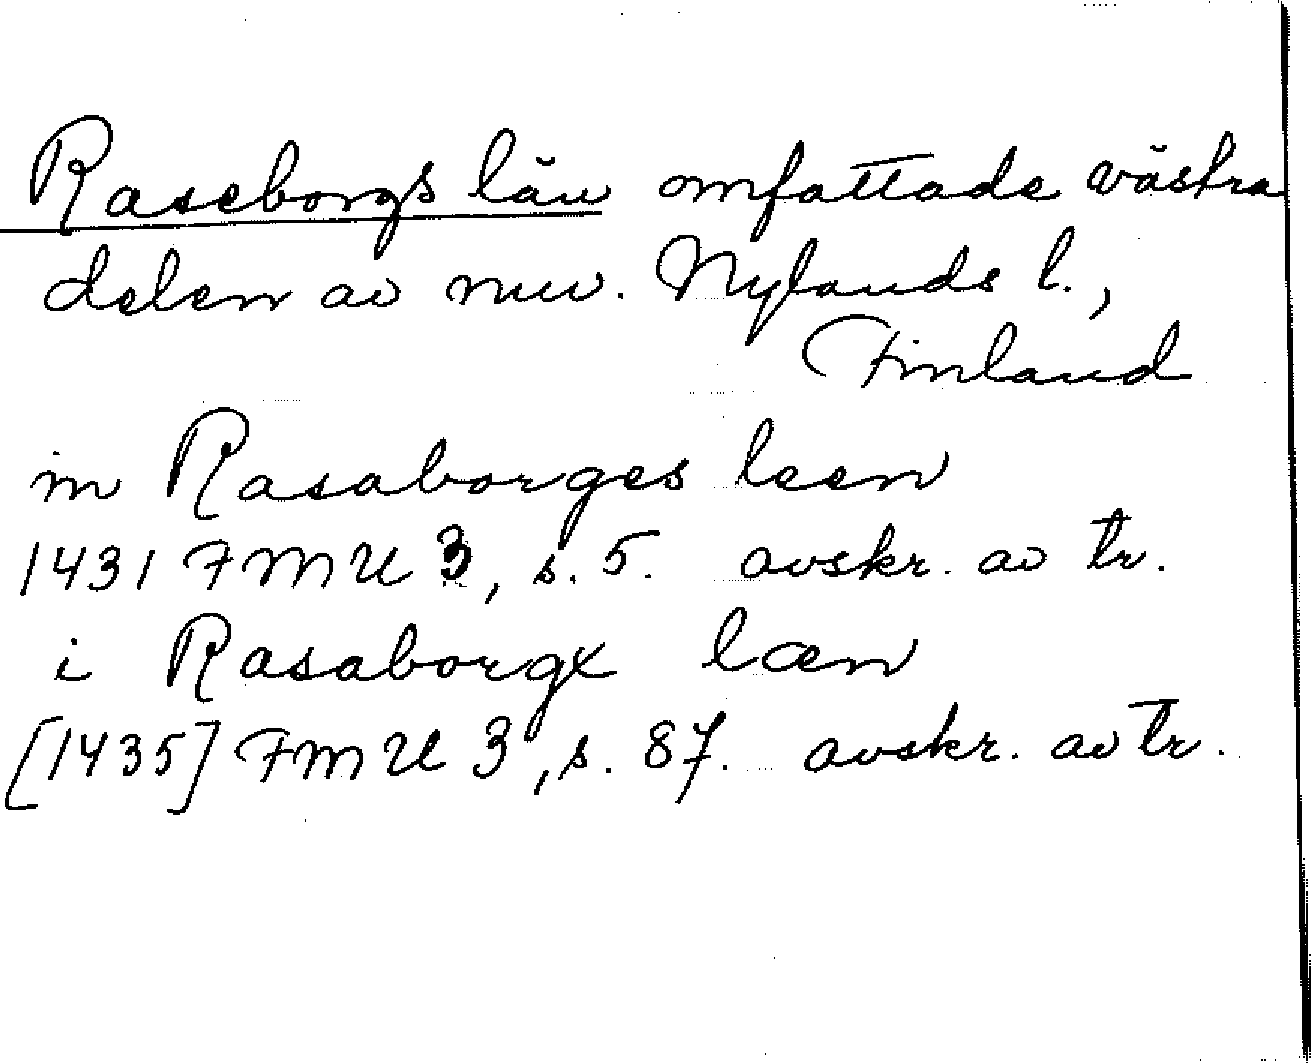 Raseborgs län omfattade västra
delen av nuv. Nylands l.,
Finland
in Rasaborges leen
1431 FMU 3, s. 5. avskr. av tr.
i Rasaborgx læn
[1435] FMU 3, s. 87. avskr. av tr.